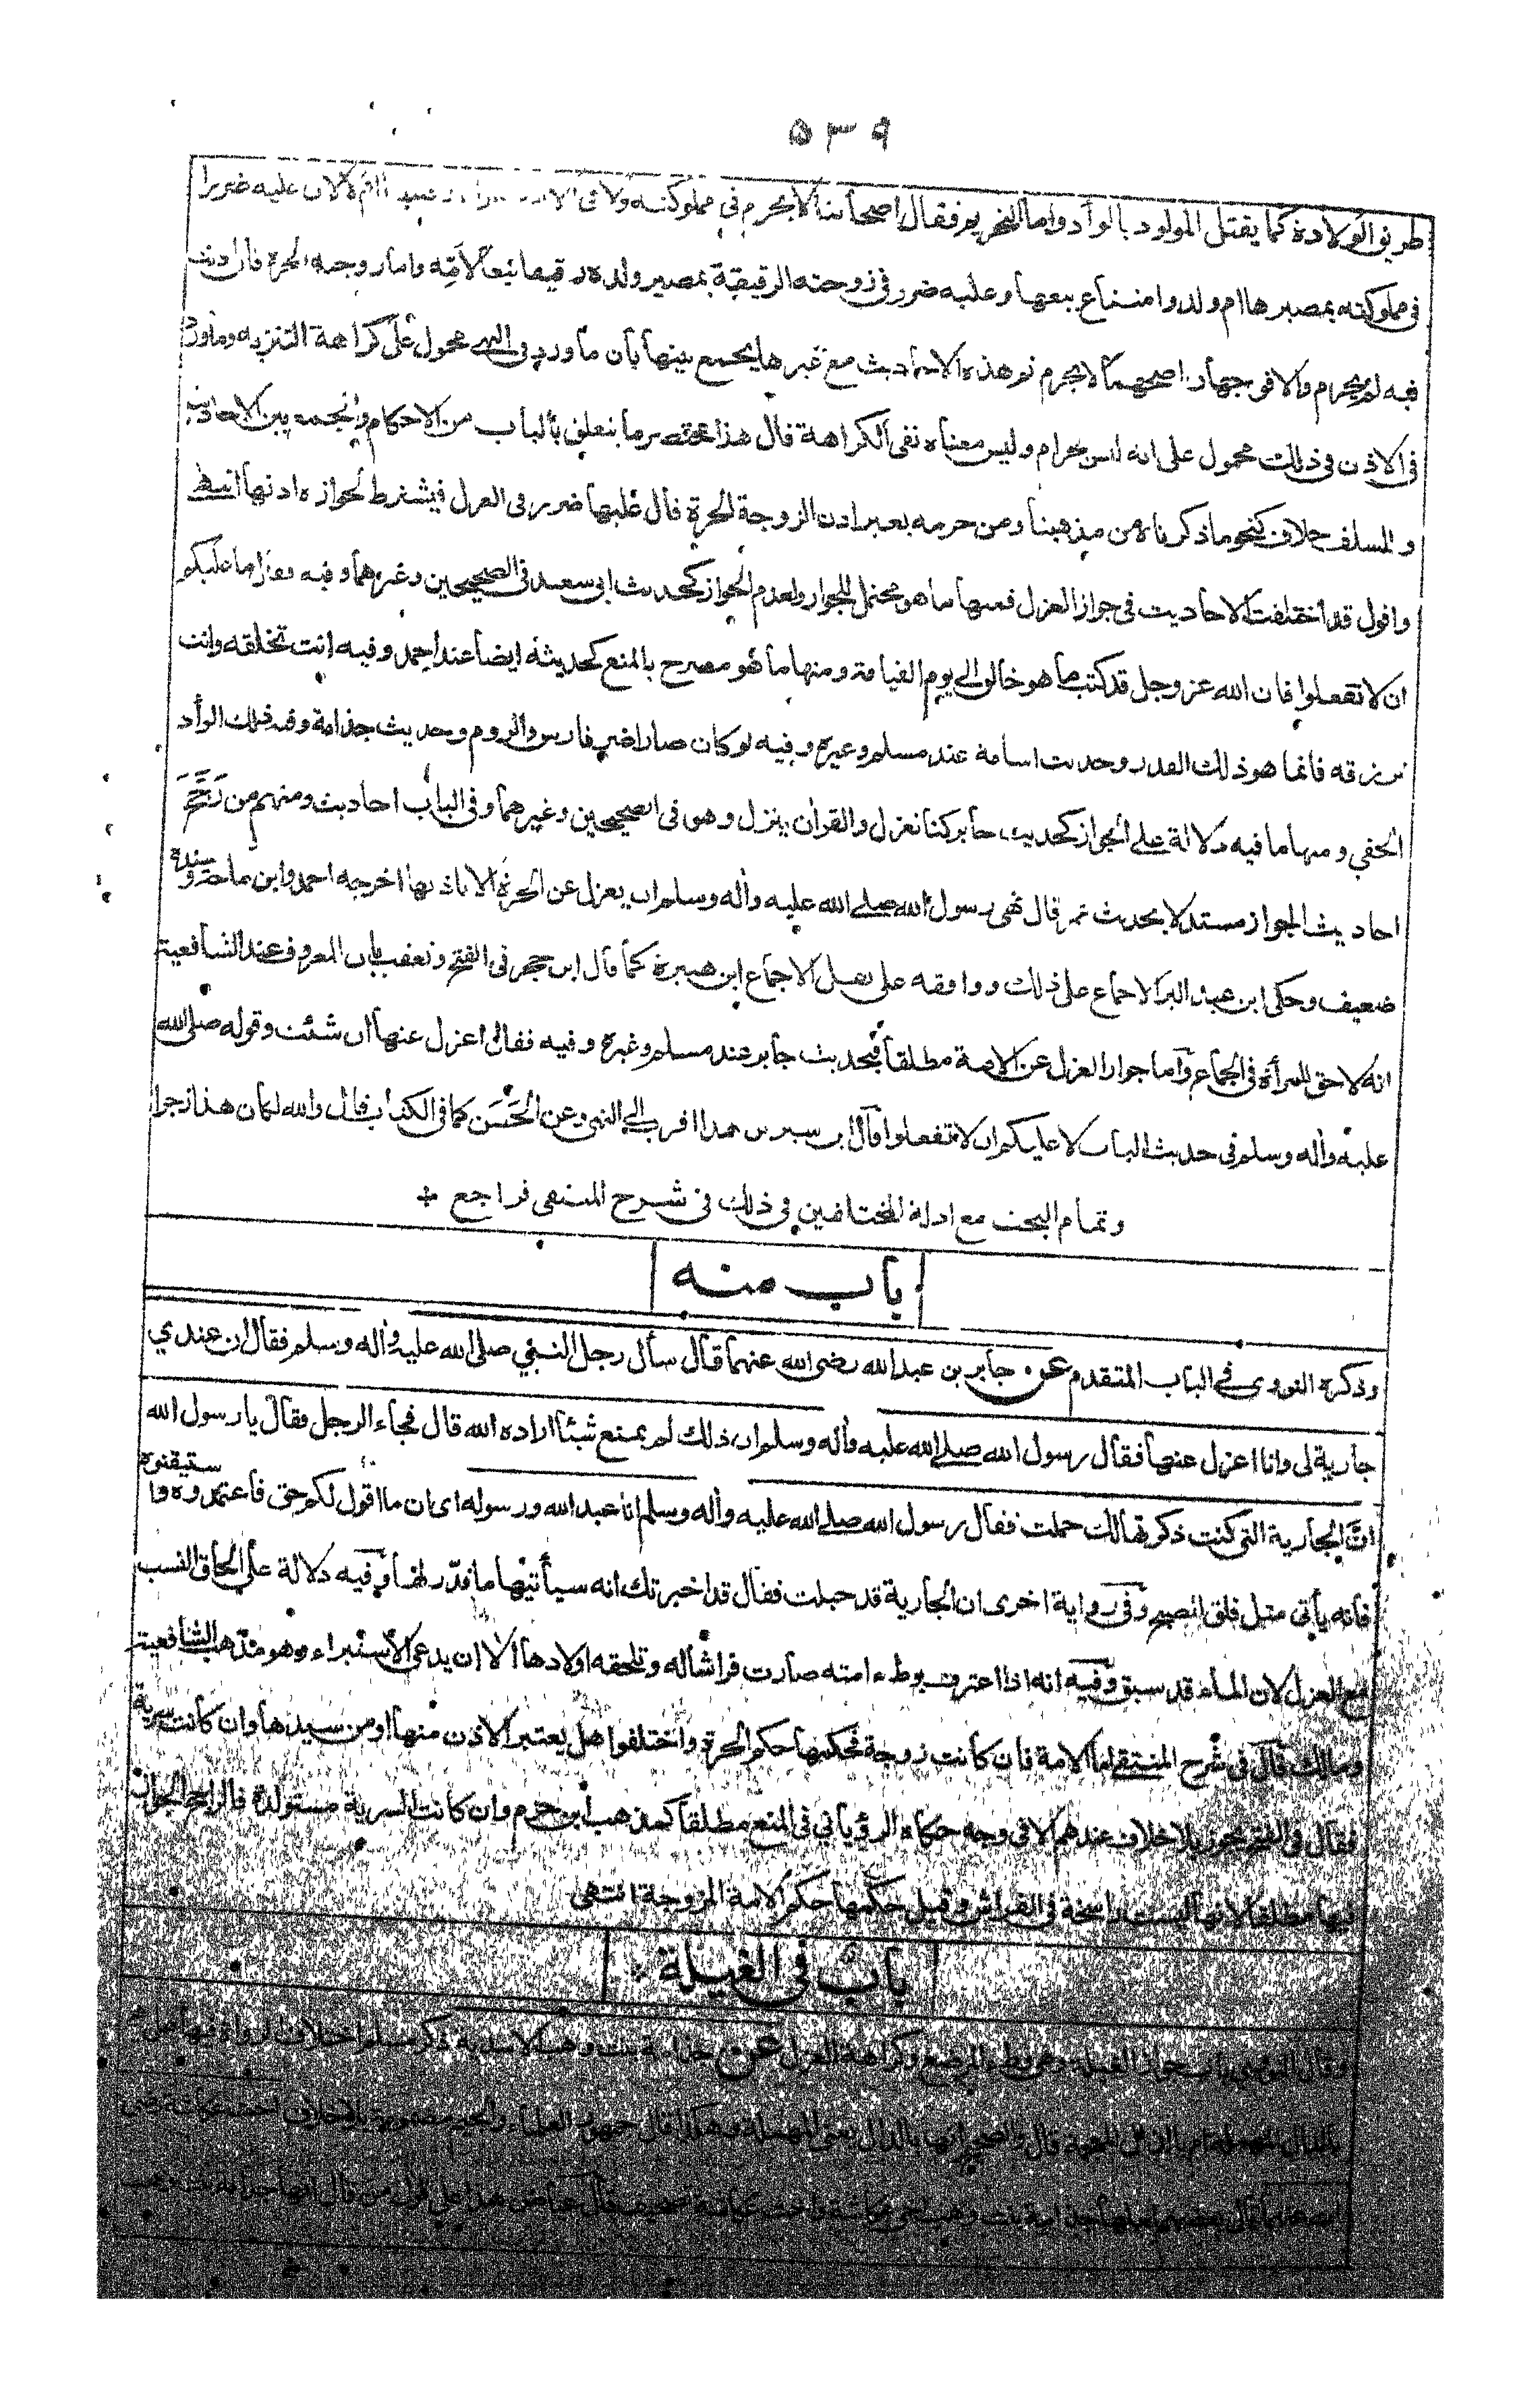 ٥٣٩
طريق الولادة كما يقتل المولود بالوأد واما التحريم فقال اصحابنا لا يحرم في مملوكته ولا في لانه لا ضرر عليه
في مملوكته بمصيرها ام ولد وامتناع بيعها وعليه ضرر في زوجته الرقيقة بمصير ولده رقيقا تبعا لامه واما زوجته الحرة فان اذنت
فيه لم يحرم والا فوجهان اصحهما لا يحرم ثم هذه الاحاديث مع غيرها يجمع بينها بأن ما ورد في النهي محمول على كراهة التنزيه وما ورد
في الاذن في ذلك محمول على انه ليس بحرام وليس معناه نفي الكراهة قال هذا مختصر ما يتعلق بالباب من الاحكام والجمع بين الاحاديث
وللسلف خلاف كنحو ما ذكرناه من مذهبنا ومن حرمه بغير اذن الزوجة الحرة قال عليها ضرر في العزل فيشترط لجوازه اذنها انتهى
واقول قد اختلفت الاحاديث في جواز العزل فمنها ما هو محتمل للجواز ولعدم الجواز كحديث ابي سعيد في الصحيحين وغيرهما وفيه فقال ما عليكم
ان لا تفعلوا فان الله عز وجل قد كتب ما هو خالق الى يوم القيامة ومنها ما هو مصرح بالمنع كحديثه ايضا عند احمد وفيه انت تخلقه وانت
ترزقه فانما هو ذلك القدر وحديث اسامة عند مسلم وغيره وفيه لو كان ضارا ضر فارس والروم وحديث جذامة وفيه ذلك الوأد
الخفي ومنها ما فيه دلالة على الجواز كحديث جابر كنا نعزل والقران ينزل وهو في الصحيحين وغيرهما وفي الباب احاديث ومنهم من رَجَّحَ
احاديث الجواز مستدلا بحديث عمر قال نهى رسول الله صلى الله عليه واله وسلم ان يعزل عن الحرة الا باذنها اخرجه احمد وابن ماجة وسنده
ضعيف وحكى ابن عبد البر الاجماع على ذلك ووافقه على نقل الاجماع ابن هبيرة كما قال ابن حجر في الفتح وتعقب بان المعروف عند الشافعية
انه لا حق للمرأة في الجماع واما جواز العزل عن الامة مطلقا فبحديث جابر عند مسلم وغيره وفيه فقال اعزل عنها ان شئت وقوله صلى الله
عليه واله وسلم في حديث الباب لا عليكم ان لا تفعلوا قال ابن سيرين هذا اقرب الى النهي وعن الحَسَن كما في الكتاب قال والله لكأن هذا زجرا
وتمام البحث مع ادلة المختلفين في ذلك في شرح المنتقى فراجع
باب منه
وذكره النووي في الباب المتقدم عن جابر بن عبد الله رضى الله عنهما قال سأل رجل النبي صلى الله عليه واله وسلم فقال ان عندي
جارية لى وانا اعزل عنها فقال رسول الله صلى الله عليه واله وسلم ان ذلك لم يمنع شيئا اراده الله قال فجاء الرجل فقال يا رسول الله
انَّ الجارية التى كنت ذكرتها لك حملت فقال رسول الله صلى الله عليه واله وسلم انا عبد الله ورسوله اى ان ما اقول لكم حق فاعتمدوه واستيقنوه
فانه يأتى مثل فلق الصبح وفى رواية اخرى ان الجارية قد حبلت فقال قد اخبرتك انه سيأتيها ما قدّر لها وفيه دلالة على الحاق النسب
مع العزل لان الماء قد سبق وفيه انه اذا اعترف بوطء امته صارت فراشا له وتلحقه اولادها الا ان يدعى الاستبراء وهو مذهب الشافعية
ومالك قال فى شرح المنتقى اما الامة فان كانت زوجة فحكمها حكم الحرة واختلفوا هل يعتبر الاذن منها او من سيدها وان كانت سرية
فقال فى الفتح يجوز بلا خلاف عندهم الا فى وجه حكاه الرؤياني فى المنع مطلقا كمذهب ابن حزم وان كانت السرية مستولدة فالراجح الجواز
فيها مطلقا لانها ليست راسخة فى الفراش وقيل حكمها حكم الامة المزوجة انتهى
باب فى الغيلة
وقال النووي باب جواز الغيلة وهى وطء المرضع وكراهة العزل عن جذامة بنت وهب الاسدية ذكر مسلم اختلاف الرواة فيها هل هى
بالدال المهملة ام بالذال المعجمة قال والصحيح انها بالدال يعنى المهملة وهكذا قال جمهور العلماء والجيم مضمومة بلا خلاف اخت عكاشة